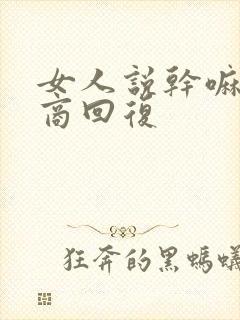 女人說幹嘛
商回復
狂奔的黑螞蟻